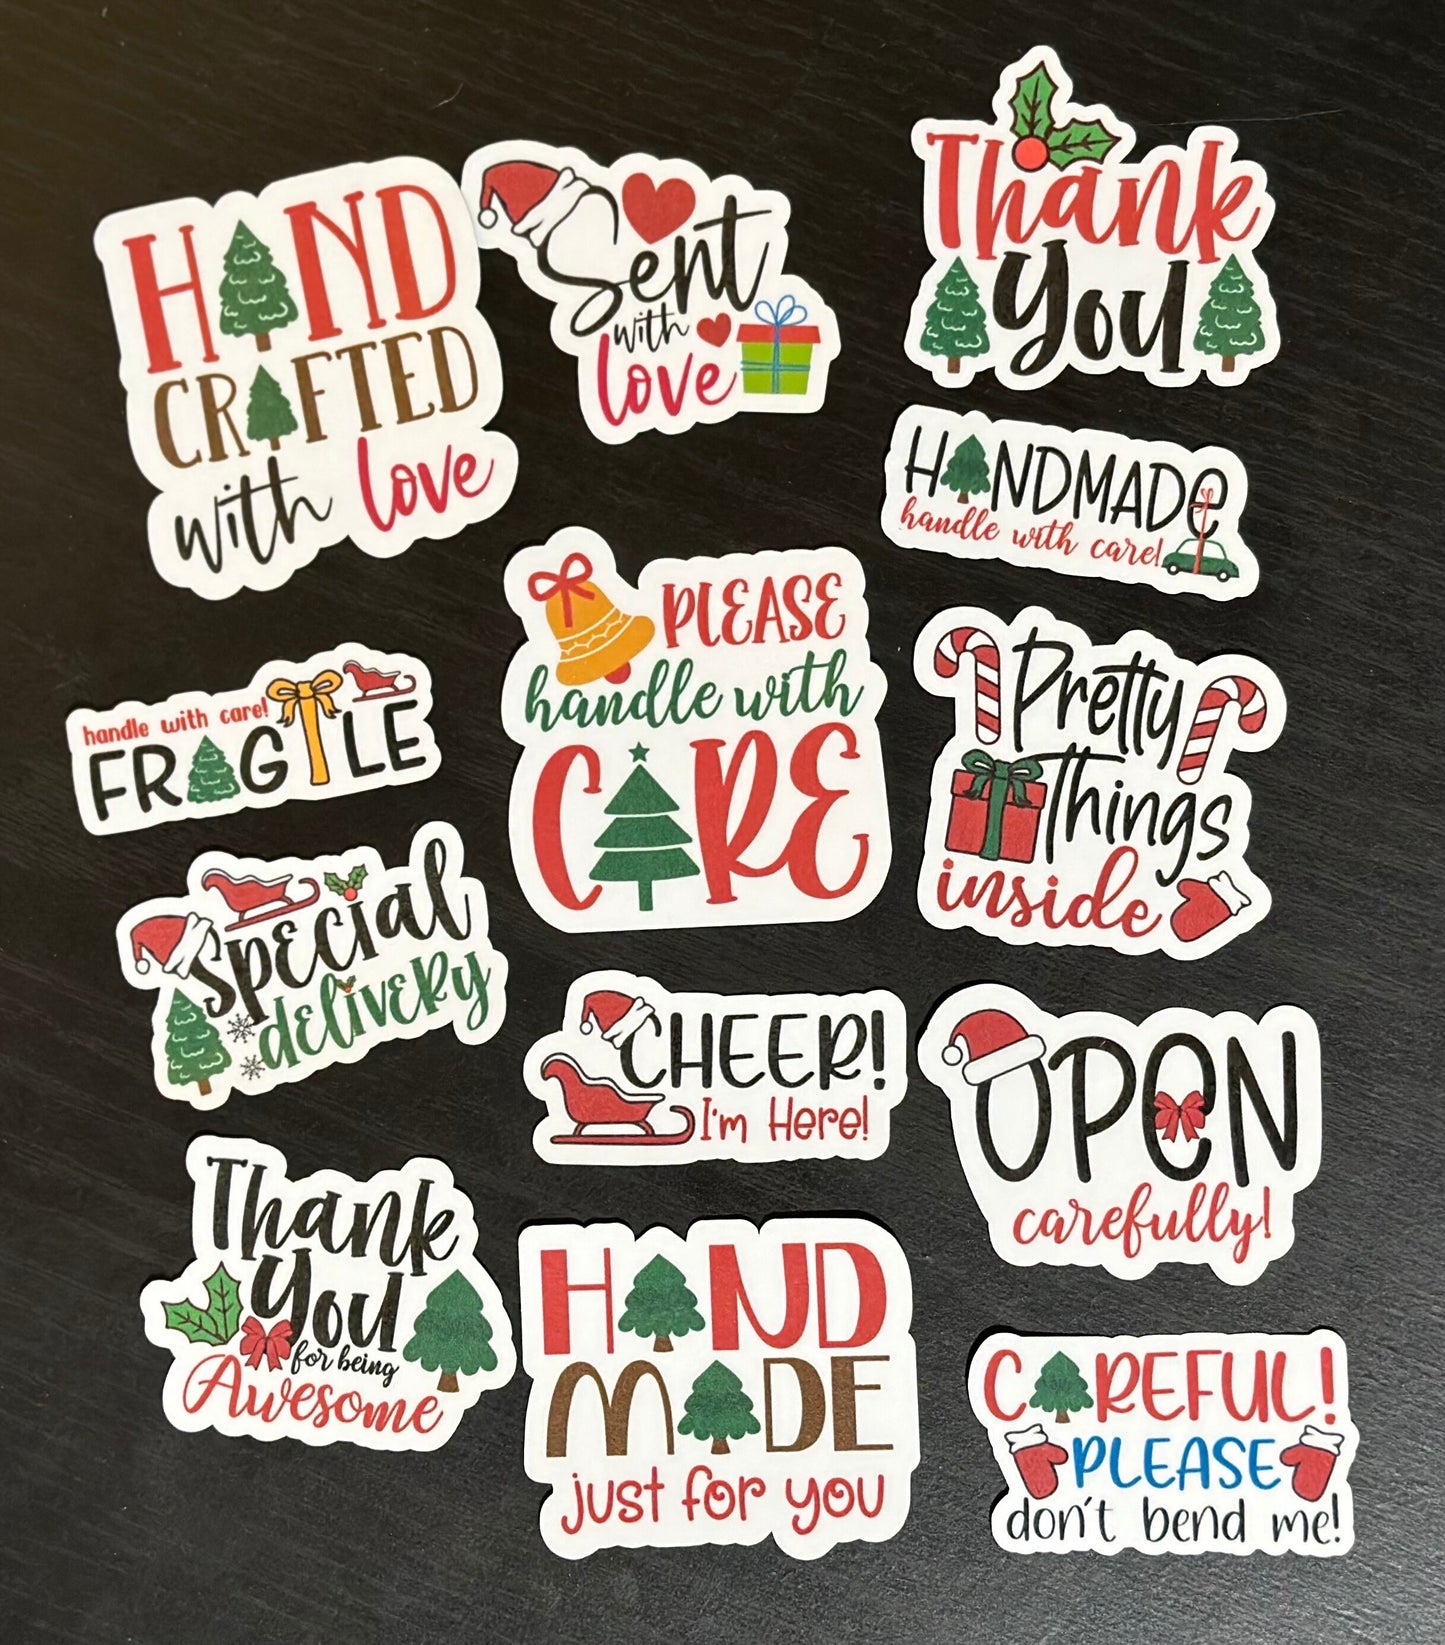 HAND
CRAFTED
with love
Sent
with
love
Thank
You
HANDMADE
handle with care!
handle with care!
FRAGILE
PLEASE
handle with
CARE
Pretty
Things
inside
Special
delivery
CHEER!
I'm Here!
OPEN
carefully!
Thank
You
for being
Awesome
HAND
MADE
just for you
CAREFUL!
PLEASE
don't bend me!